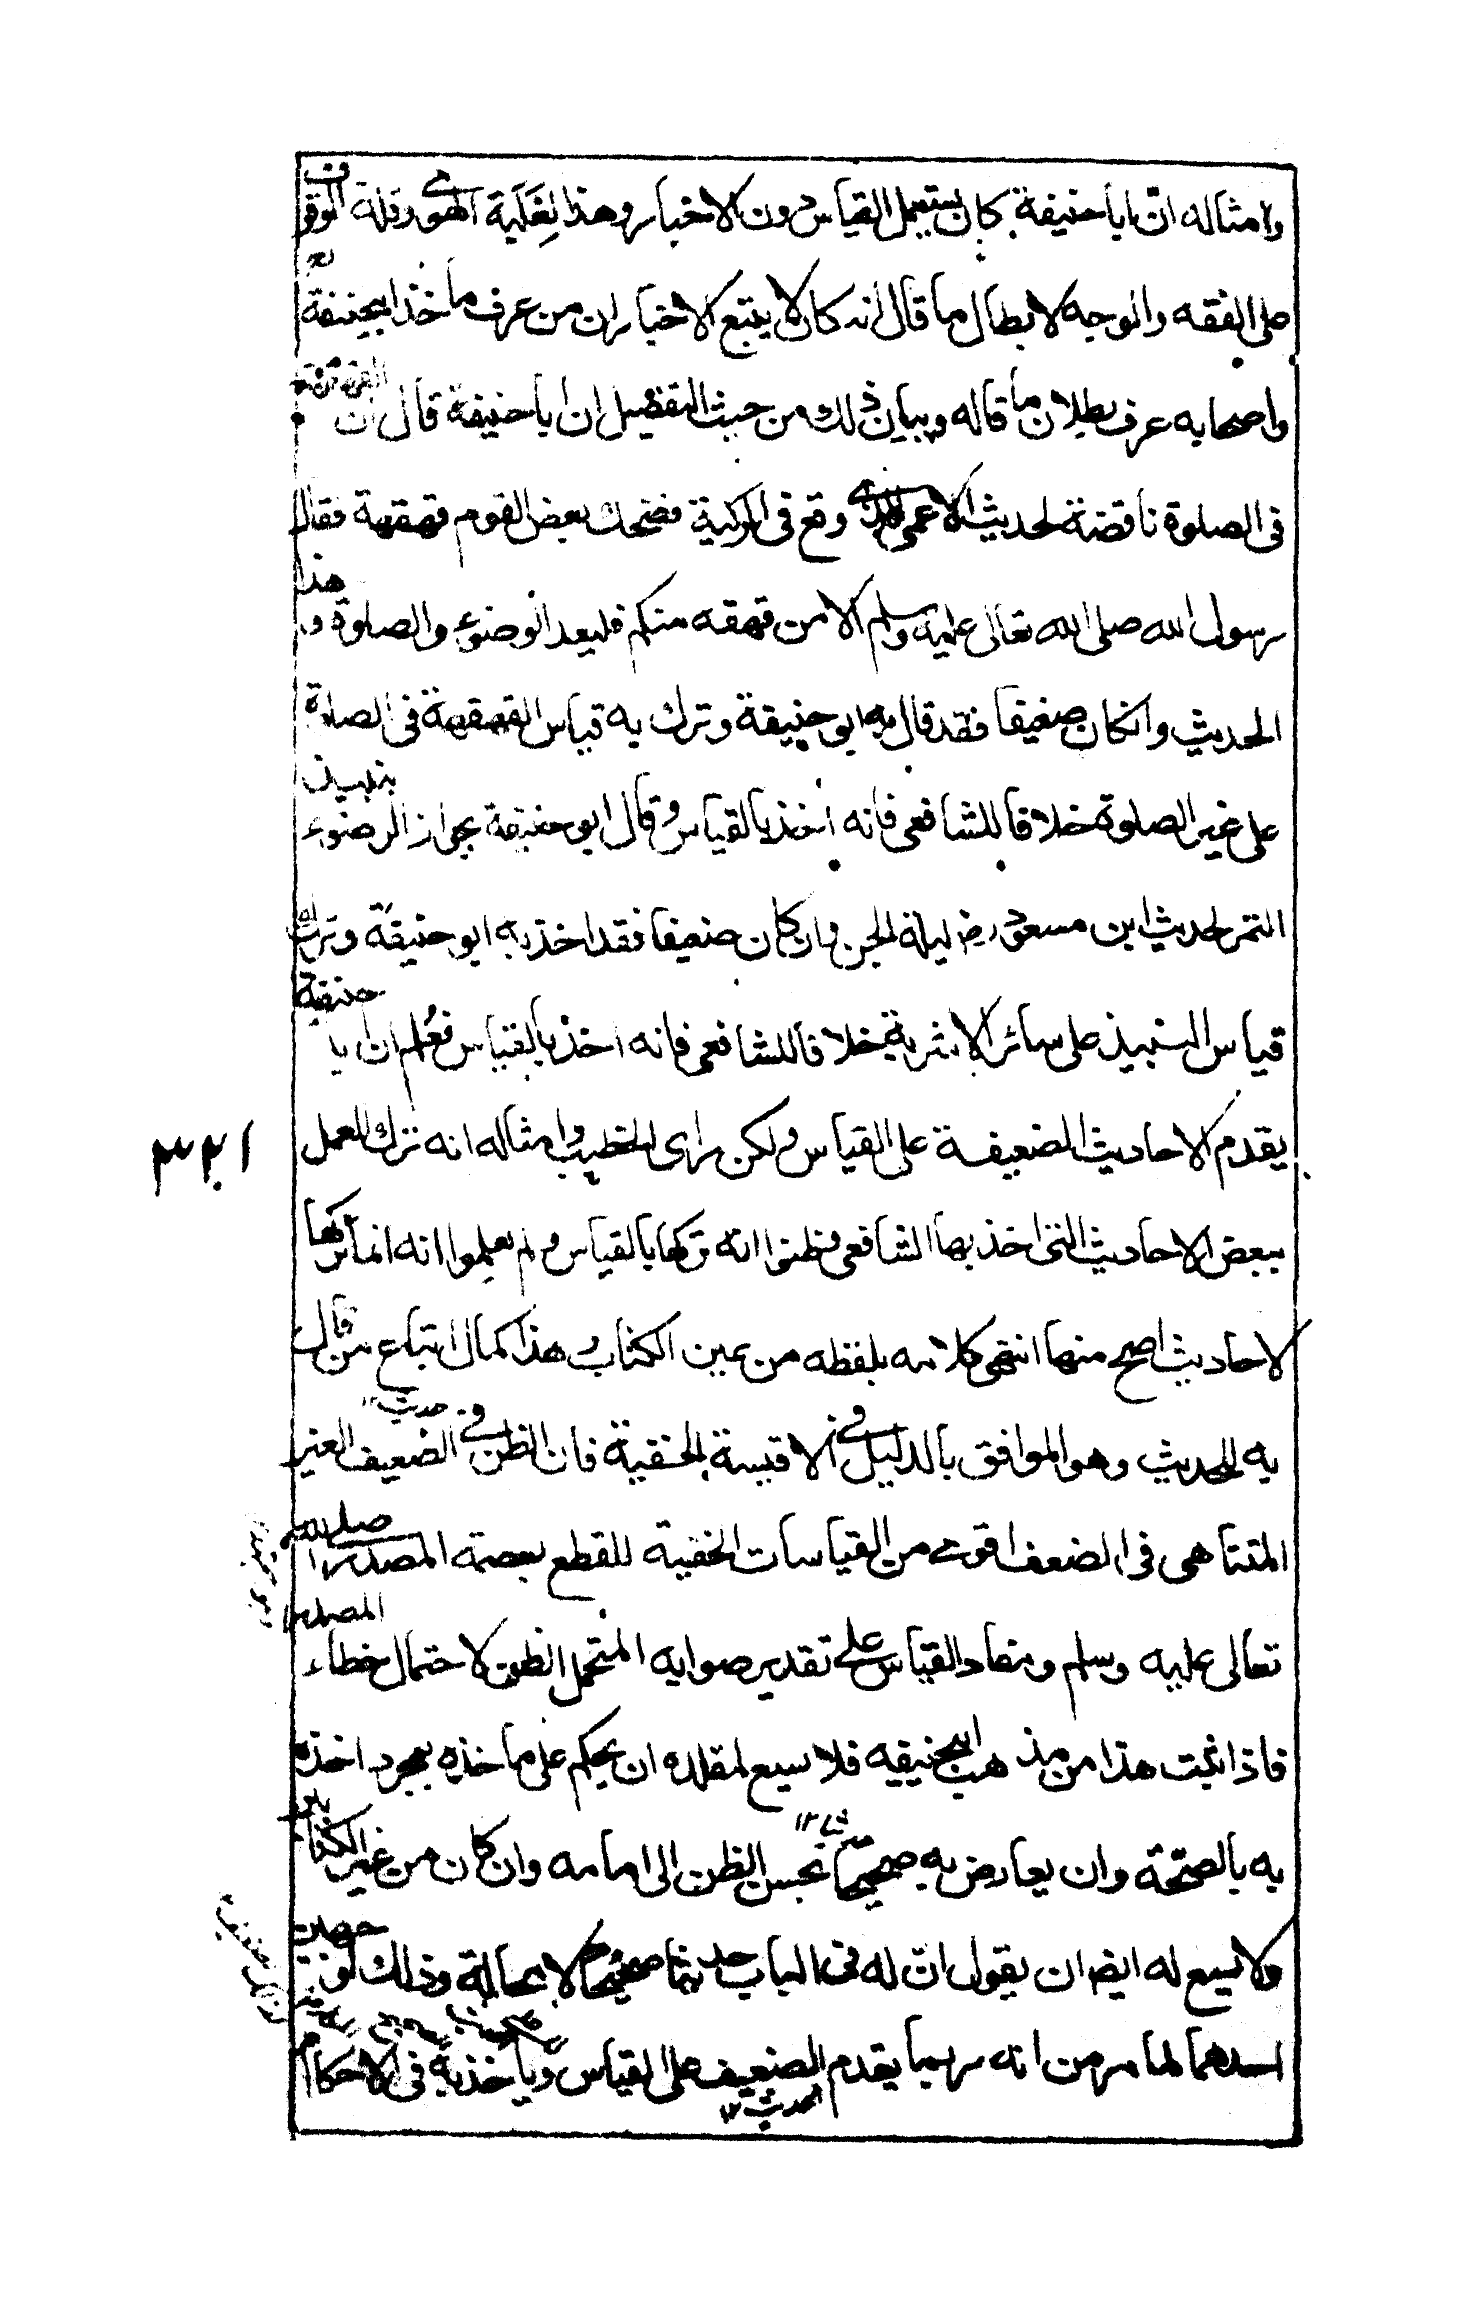 وامثاله ان ابا حنيفة كان يستعمل القياس دون الاخبار وهذا لغلبة الهوى وقلة الوقوف
على الفقه والوجه لابطال ما قال انه كان لا يتبع الاخبار ان من عرف ماخذ ابيحنيفة رح
واصحابه عرف بطلان ما قاله وبيان ذلك من حيث التفصيل ان ابا حنيفة قال ان القهقهة
فى الصلوة ناقضة لحديث الاعمى الذى وقع فى الركية فضحك بعض القوم قهقهة فقال
رسول الله صلى الله تعالى عليه وسلم الا من قهقه منكم فليعد الوضوء والصلوة وهذا
الحديث وانكان ضعيفا فقد قال به ابو حنيفة وترك به قياس القهقهة فى الصلوة
على غير الصلوة خلافا للشافعى فانه اخذ بالقياس وقال ابو حنيفة بجواز الوضوء بنبيذ
التمر لحديث ابن مسعود رض ليلة الجن وان كان ضعيفا فقد اخذ به ابو حنيفة وترك به
قياس النبيذ على سائر الاشربة خلافا للشافعى فانه اخذ بالقياس فعلم ان ابا حنيفة
يقدم الاحاديث الضعيفة على القياس ولكن راى الخطيب وامثاله انه ترك العمل
ببعض الاحاديث التى اخذ بها الشافعى وظنوا انه تركها بالقياس ولم يعلموا انه انما تركها
لاحاديث اصح منها انتهى كلامه بلفظه من عين الكتاب وهذا كمال اتباع من قال
به للحديث وهو الموافق بالدليل فى الاقيسة الخفية فان الظن فى حديث الضعيف الغير
المتناهى فى الضعف اقوى من القياسات الخفية للقطع بعصمة المصدر صلى الله
تعالى عليه وسلم ومفاد القياس على تقدير صوابه المتحمل الظن لاحتمال خطاء المصدر
فاذا ثبت هذا من مذهب ابيحنيفه فلا يسع لمقلده ان يحكم على ماخذه بمجرد اخذه
به بالصحة وان يعارض به صحيحا بحسن الظن الى امامه وان كان من غير الكتاب
ولا يسع له ايض ان يقول ان له فى الباب حديثا صحيحا لا محالة وذلك لوجهين
احدهما لما مر من انه ربما يقدم الضعيف على القياس وياخذ به فى الاحكام
الحديث ١٢
٣٢١